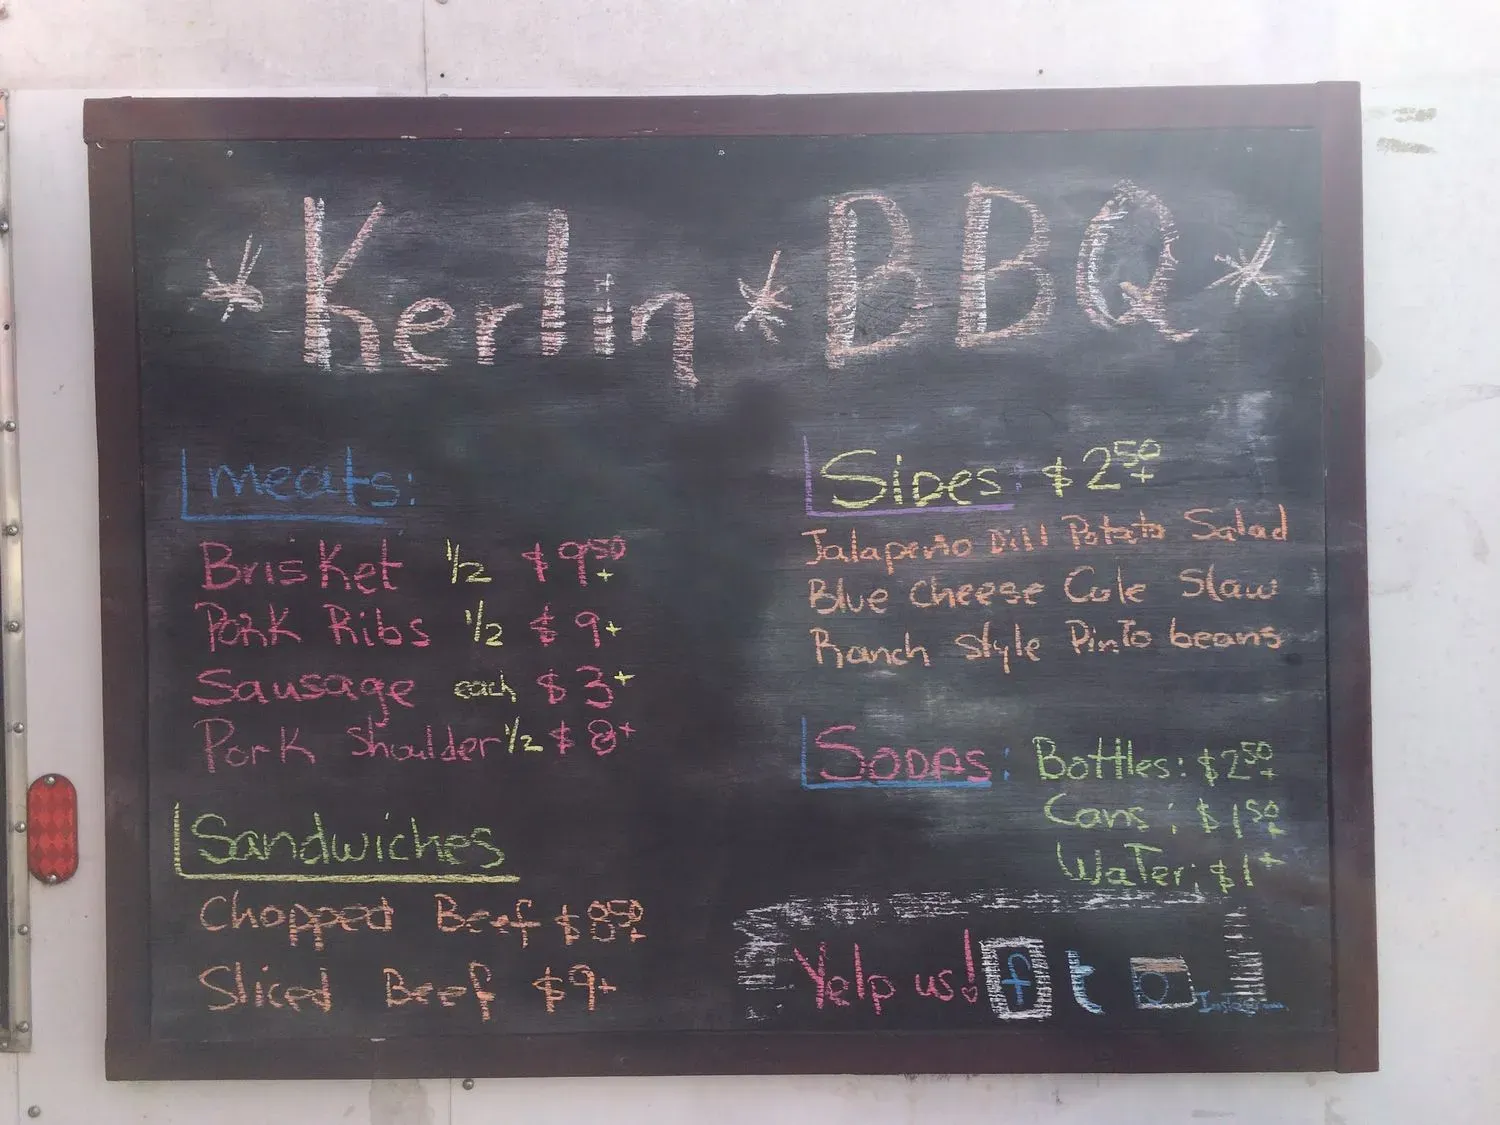 *Kerlin*BBQ*
meats:
Brisket 1/2 $9.50+
Pork Ribs 1/2 $9+
Sausage each $3+
Pork Shoulder 1/2 $8+
Sandwiches
Chopped Beef $8.50+
Sliced Beef $9+
Sides: $2.50+
Jalapeño Dill Potato Salad
Blue Cheese Cole Slaw
Ranch Style Pinto beans
Sodas: Bottles: $2.50+
Cans: $1.50+
Water: $1+
Yelp us! f t